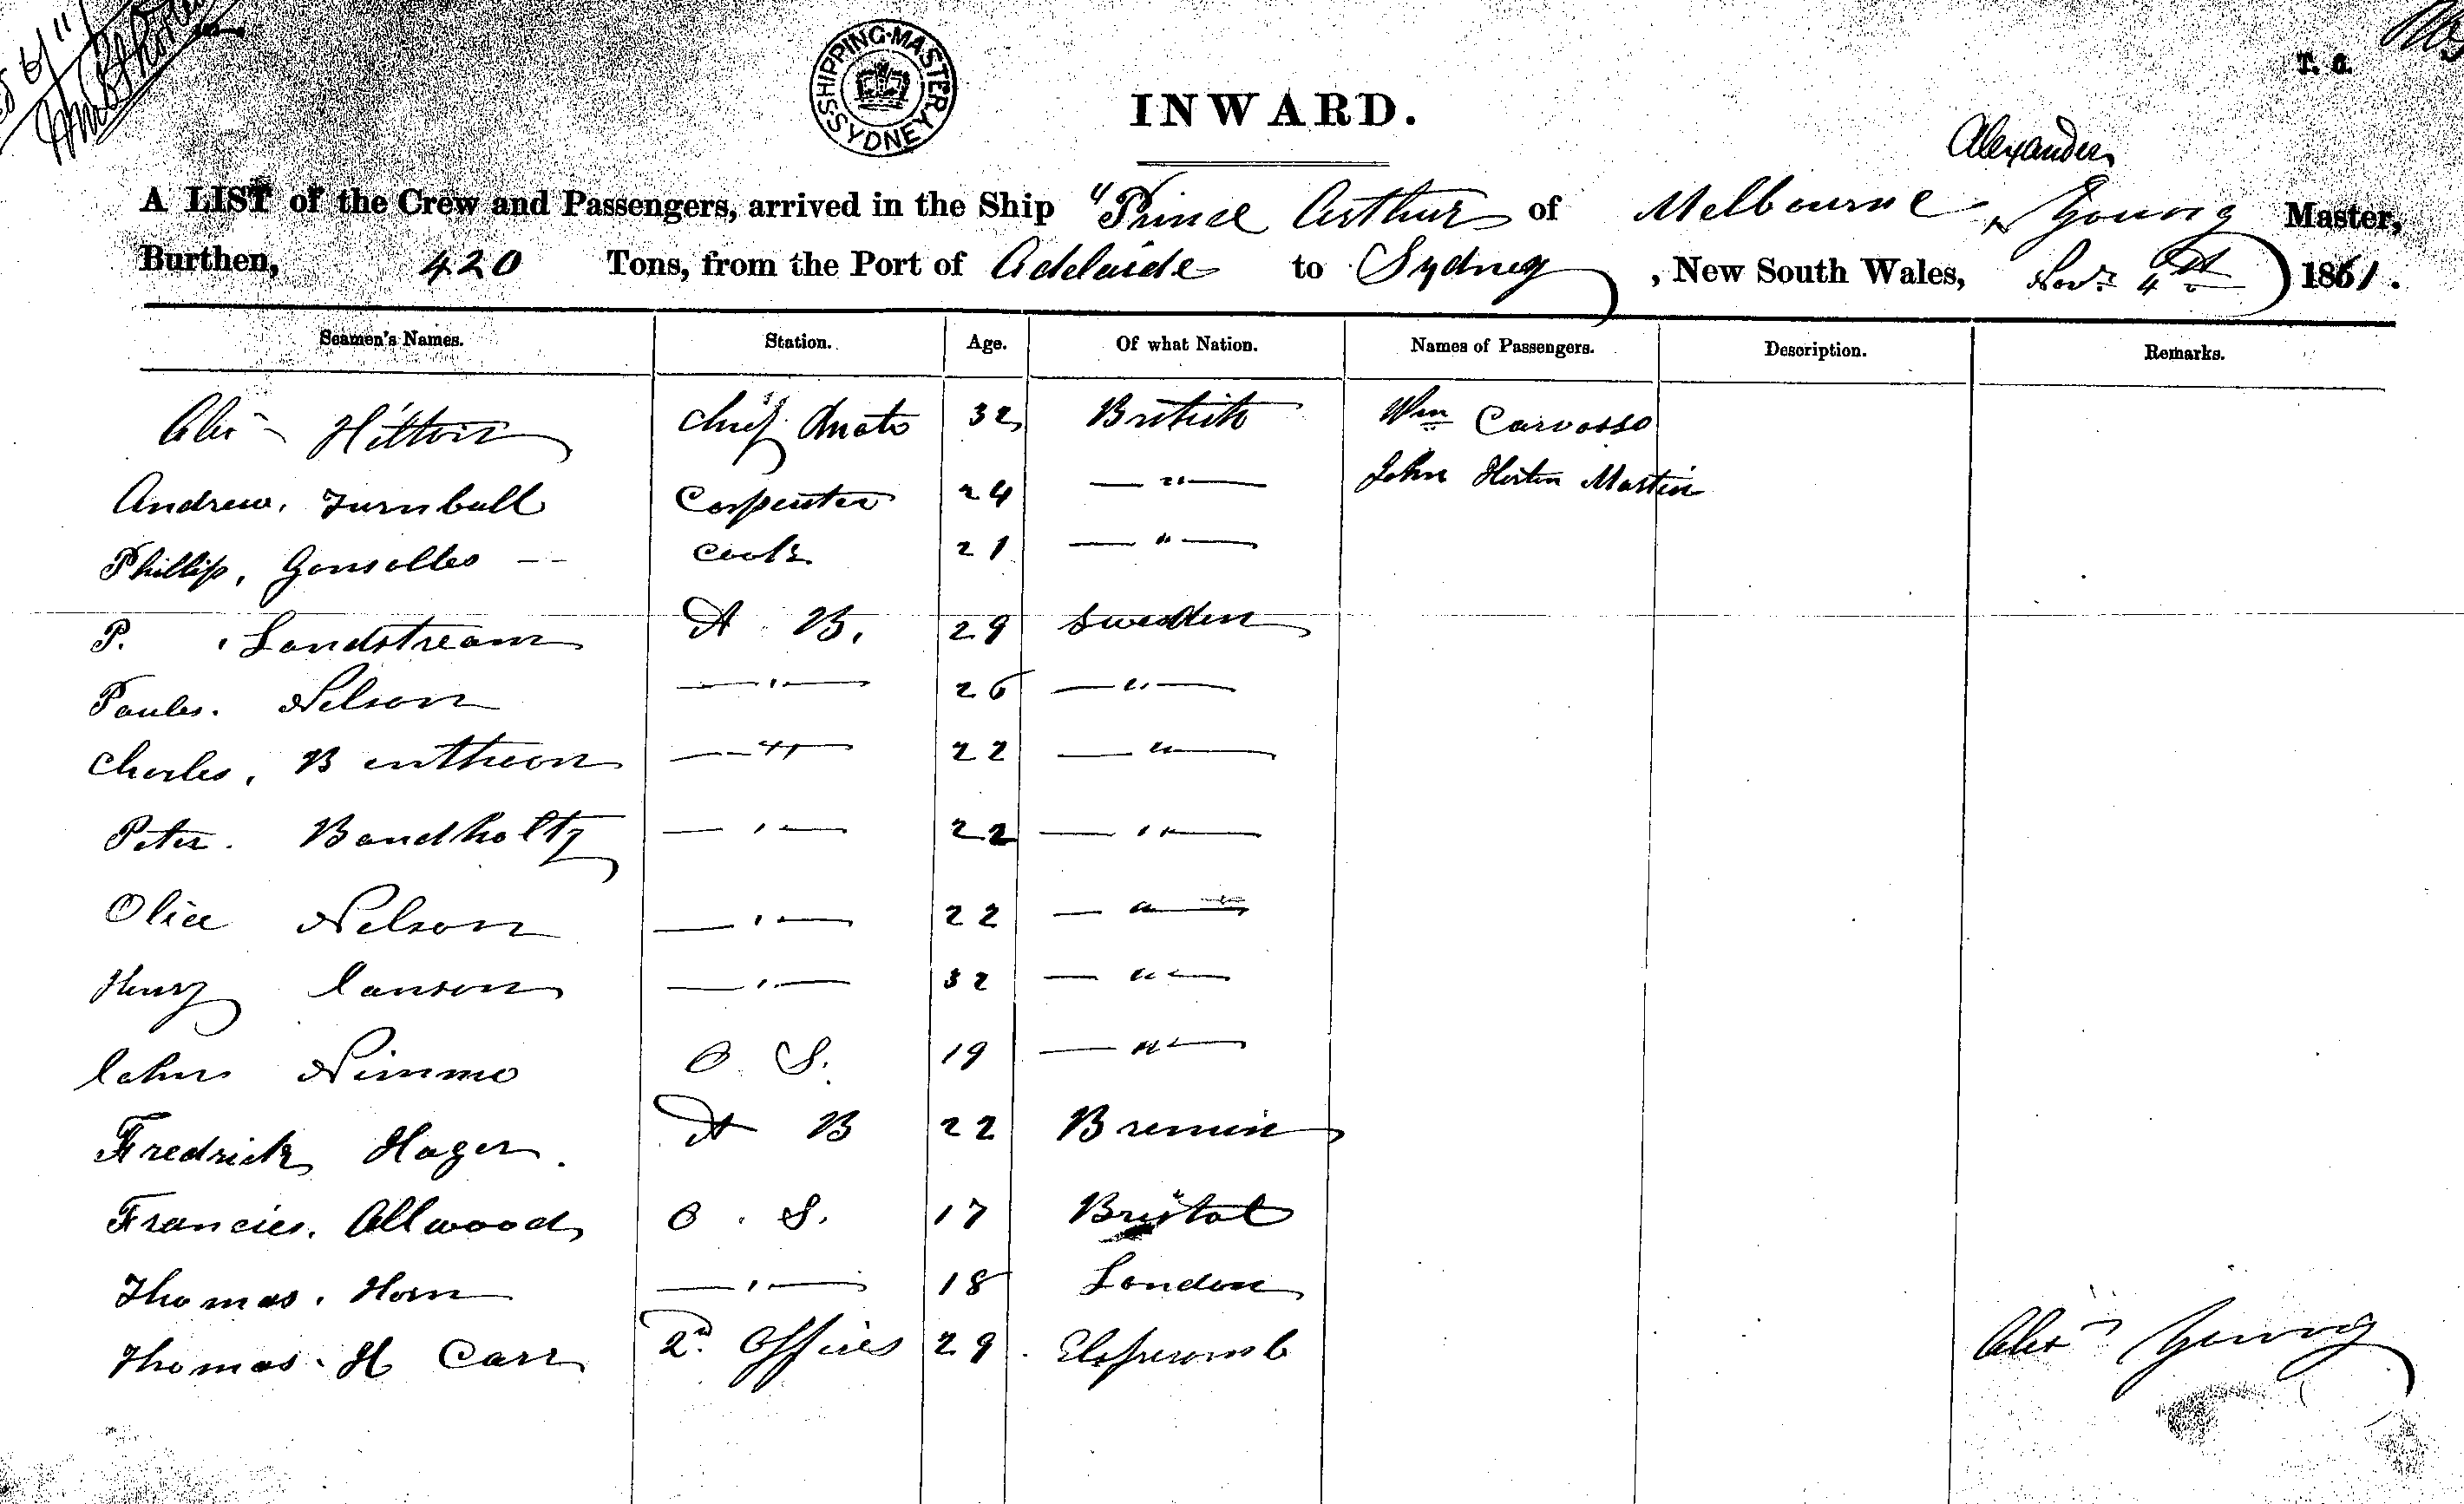 SHIPPING-MASTER SYDNEY
T. G.
INWARD.
Alexander
A LIST of the Crew and Passengers, arrived in the Ship "Prince Arthur of Melbourne, Young Master,
Burthen, 420 Tons, from the Port of Adelaide to Sydney, New South Wales, Novr 4th 1861.
Seamen's Names. Station. Age. Of what Nation. Names of Passengers. Description. Remarks.
Chief Mate 32 British Wm Carvosso
Andrew. Turnbull Carpenter 24 — " — John Horten Martin
Phillip, Gonsalles — Cook 21 — " —
P. Landstream A B. 29 Sweden
Paules. Nelson — " — 26 — " —
Charles, Bentheon — " — 22 — " —
Peter. Bandholtz — " — 22 — " —
Nelson — " — 22 — " —
Henry Janson — " — 32 — " —
John Nimmo O S. 19 — " —
Fredrick Hager. A B 22 Bremin
Francies. Allwood O. S. 17 Bristol
Thomas. Horn — " — 18 London
Thomas. H Carr 2d Officer 29.
Alexr Young